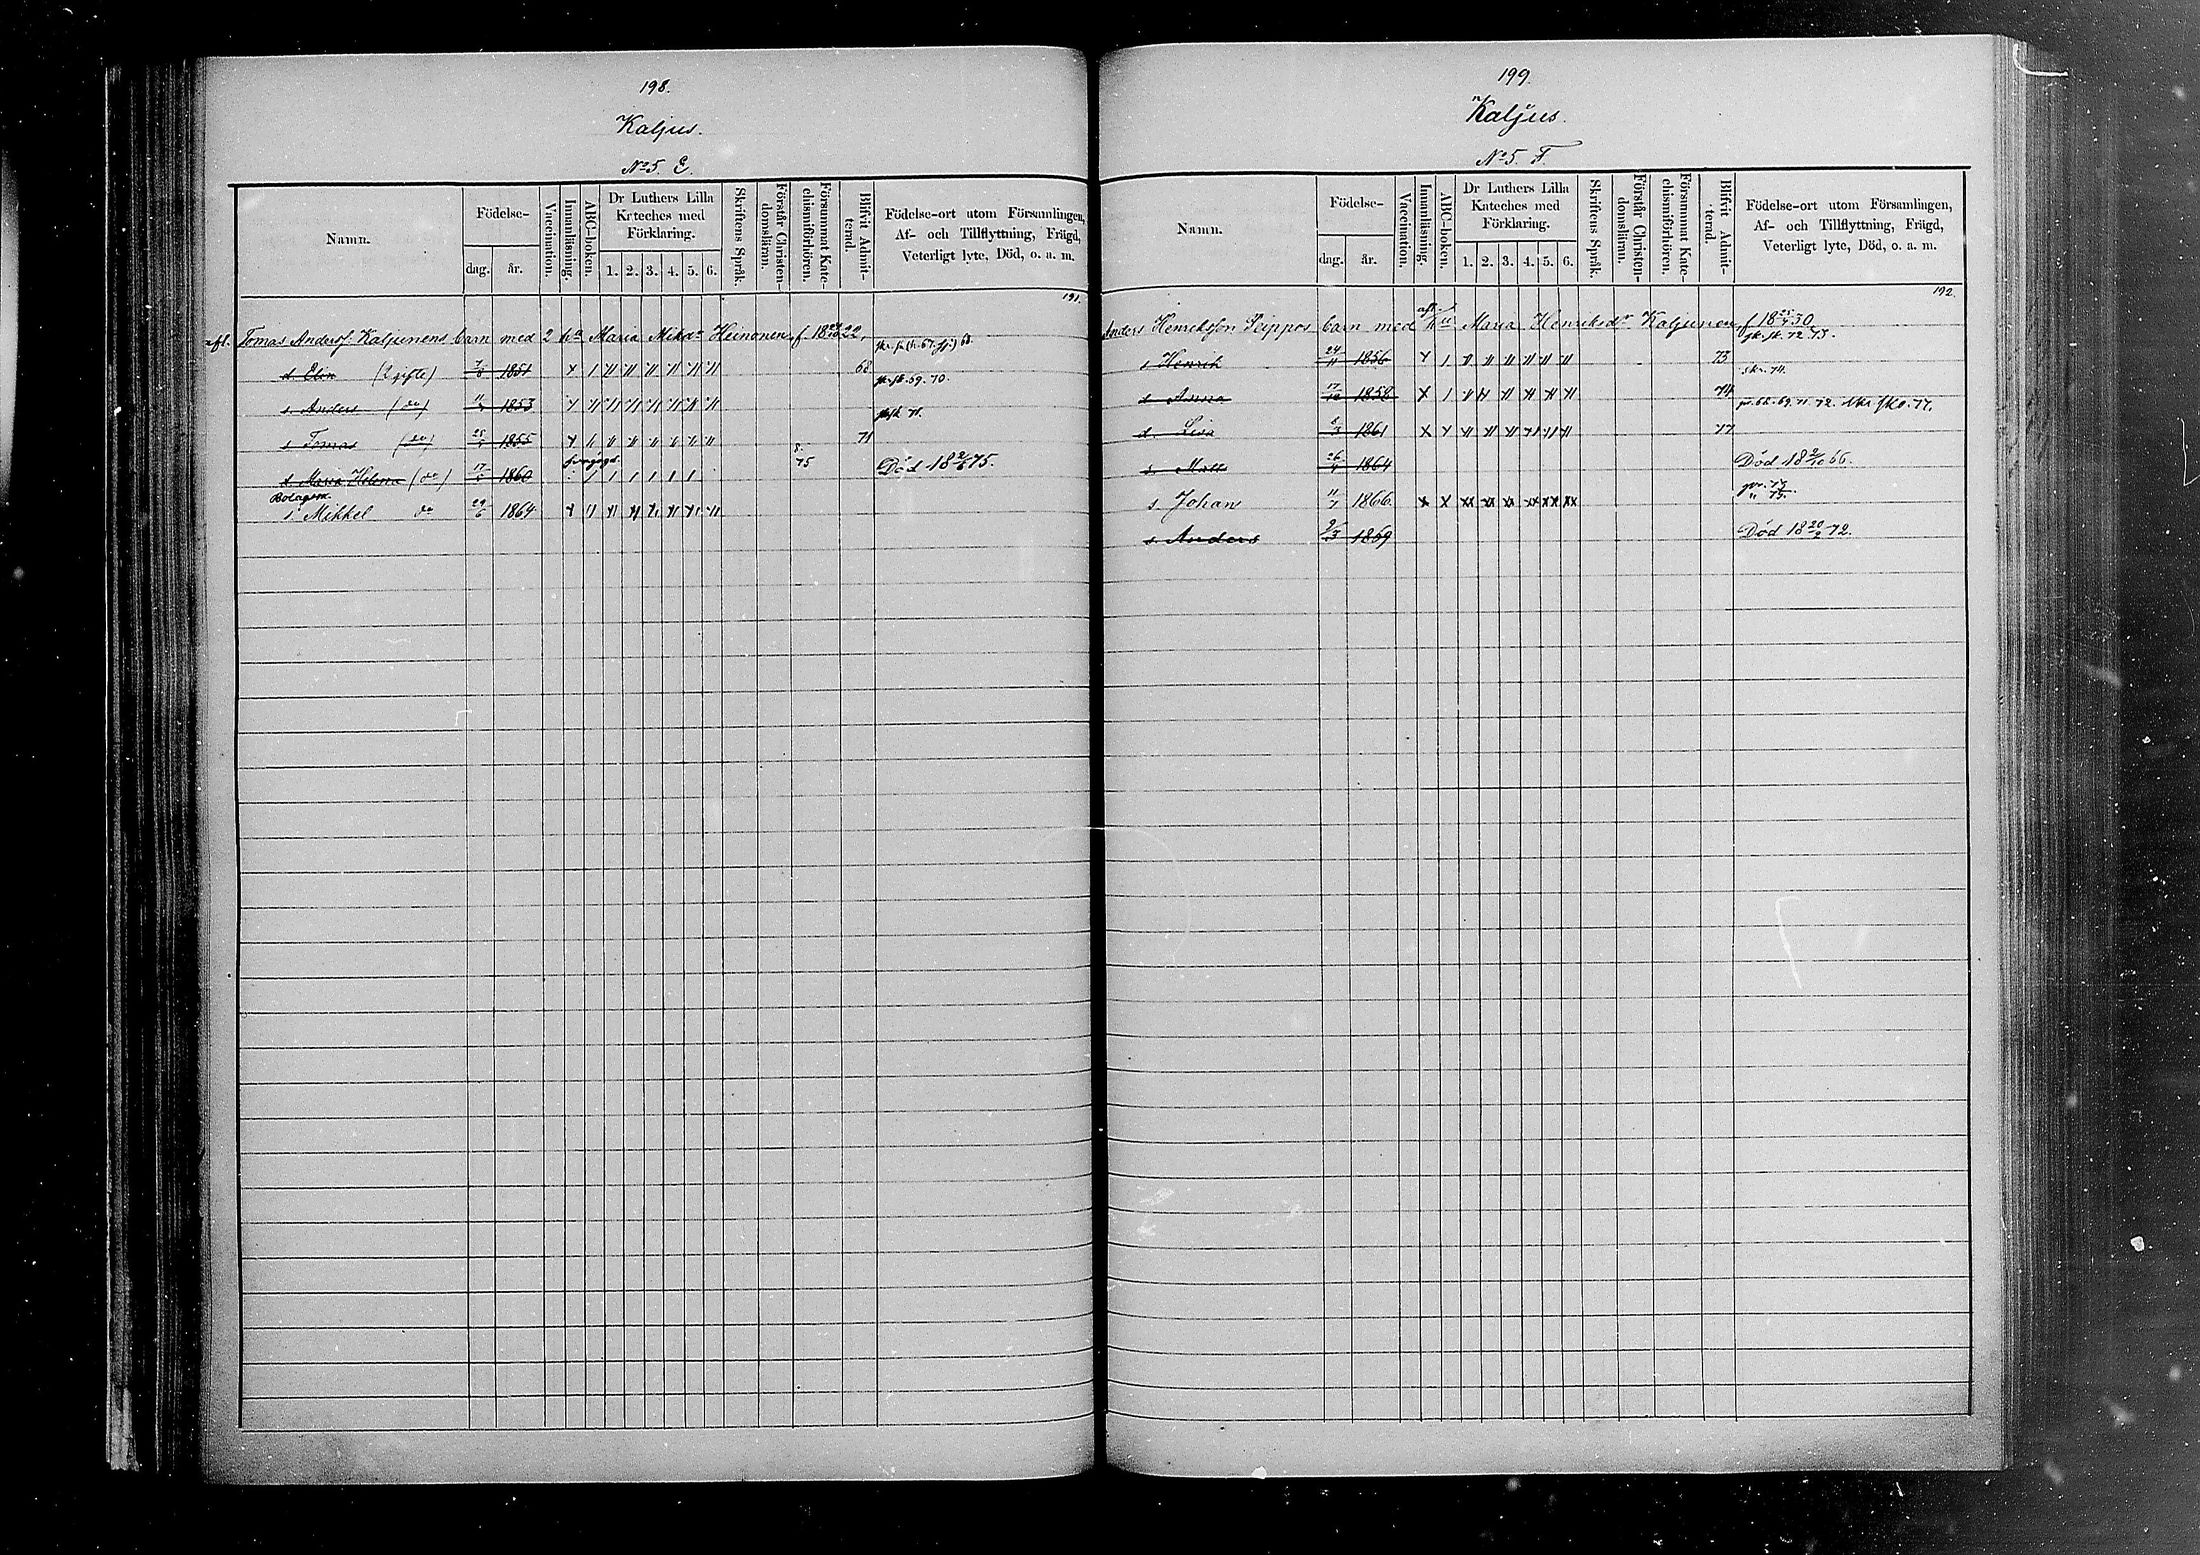 198.
Kaljus.
No 5. E.
Namn.
Födelse-
dag.
år.
Vaccination.
Innanläsning.
ABC-boken.
Dr Luthers Lilla
Krteches med
Förklaring.
1. 2. 3. 4. 5. 6.
Skriftens Språk.
Förstår Christen-
domsläran.
Försummat Kate-
chismiförhören.
Blifvit Admit-
terad.
Födelse-ort utom Församlingen,
Af- och Tillflyttning, Frägd,
Veterligt lyte, Död, o. a. m.
191.
afl. Tomas Anders. Kaljunens barn med 2 hu Maria Mikdr Heinonen, f. 18 22,
d. Elin (2 gifte) 7/8 1851 68.
s. Anders (do) 1853 69. 70.
s. Tomas (do) 25 1855 71
d. Maria Helena (do) 17 1860 8. 75 Död 18 2/6 75.
s. Mikkel do 29/6 1864
199.
Kaljus.
No 5. F.
Namn.
Födelse-
dag.
år.
Vaccination.
Innanläsning.
ABC-boken.
Dr Luthers Lilla
Kateches med
Förklaring.
1. 2. 3. 4. 5. 6.
Skriftens Språk.
Förstår Christen-
domsläran.
Försummat Kate-
chismiförhören.
Blifvit Admit-
terad.
Födelse-ort utom Församlingen,
Af- och Tillflyttning, Frägd,
Veterligt lyte, Död, o. a. m.
192.
Anders Henriksson Seippos barn med hu Maria Henriksdr Kaljunen, f 18 30
72. 73.
s Henrik 24/11 1856 73
74.
d Anna 17/10 1858 74
68. 69. 71. 72. 77.
d. Lisa 1861 77
s. Matts 26 1864 Död 18 2/10 66.
s. Johan 11/7 1866
s. Anders 1869 Död 18 20 72.